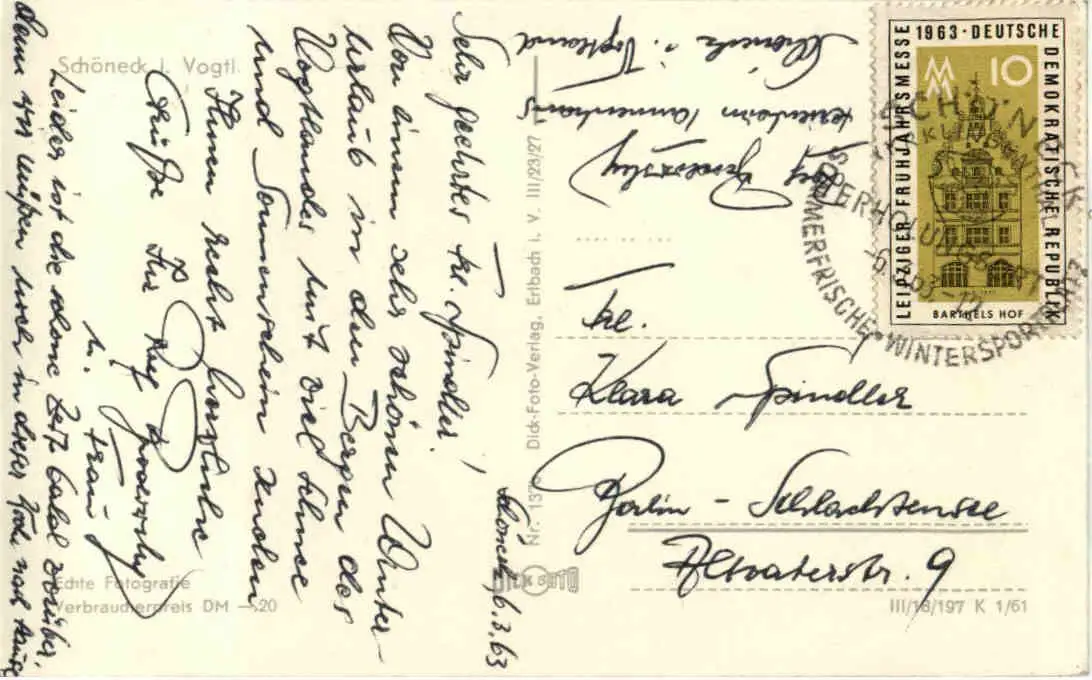 Schöneck i. Vogtl.
Schöneck, 6.3.63
Sehr geehrtes Frl. Spindler!
Von einem sehr schönen Winter-
urlaub in den Bergen des
Vogtlandes mit viel Schnee
und Sonnenschein senden
Ihnen recht herzliche
Grüße Ihr
u. Frau
Leider ist die schöne Zeit bald vorüber,
denn wir müssen noch in dieser Woche nach Hause
Echte Fotografie
Verbraucherpreis DM –,20
Dick-Foto-Verlag, Erlbach i. V. III/23/27
DICK FOTO
Ferienheim Tannenhaus
Schöneck i. Vogtland
Frl.
Klara Spindler
Berlin - Schlachtensee
Altvaterstr. 9
III/18/197 K 1/61
LEIPZIGER FRÜHJAHRSMESSE 1963 · DEUTSCHE DEMOKRATISCHE REPUBLIK
MM 10
BARTHELS HOF
SCHÖNECK
SOMMERFRISCHE · WINTERSPORTPLATZ